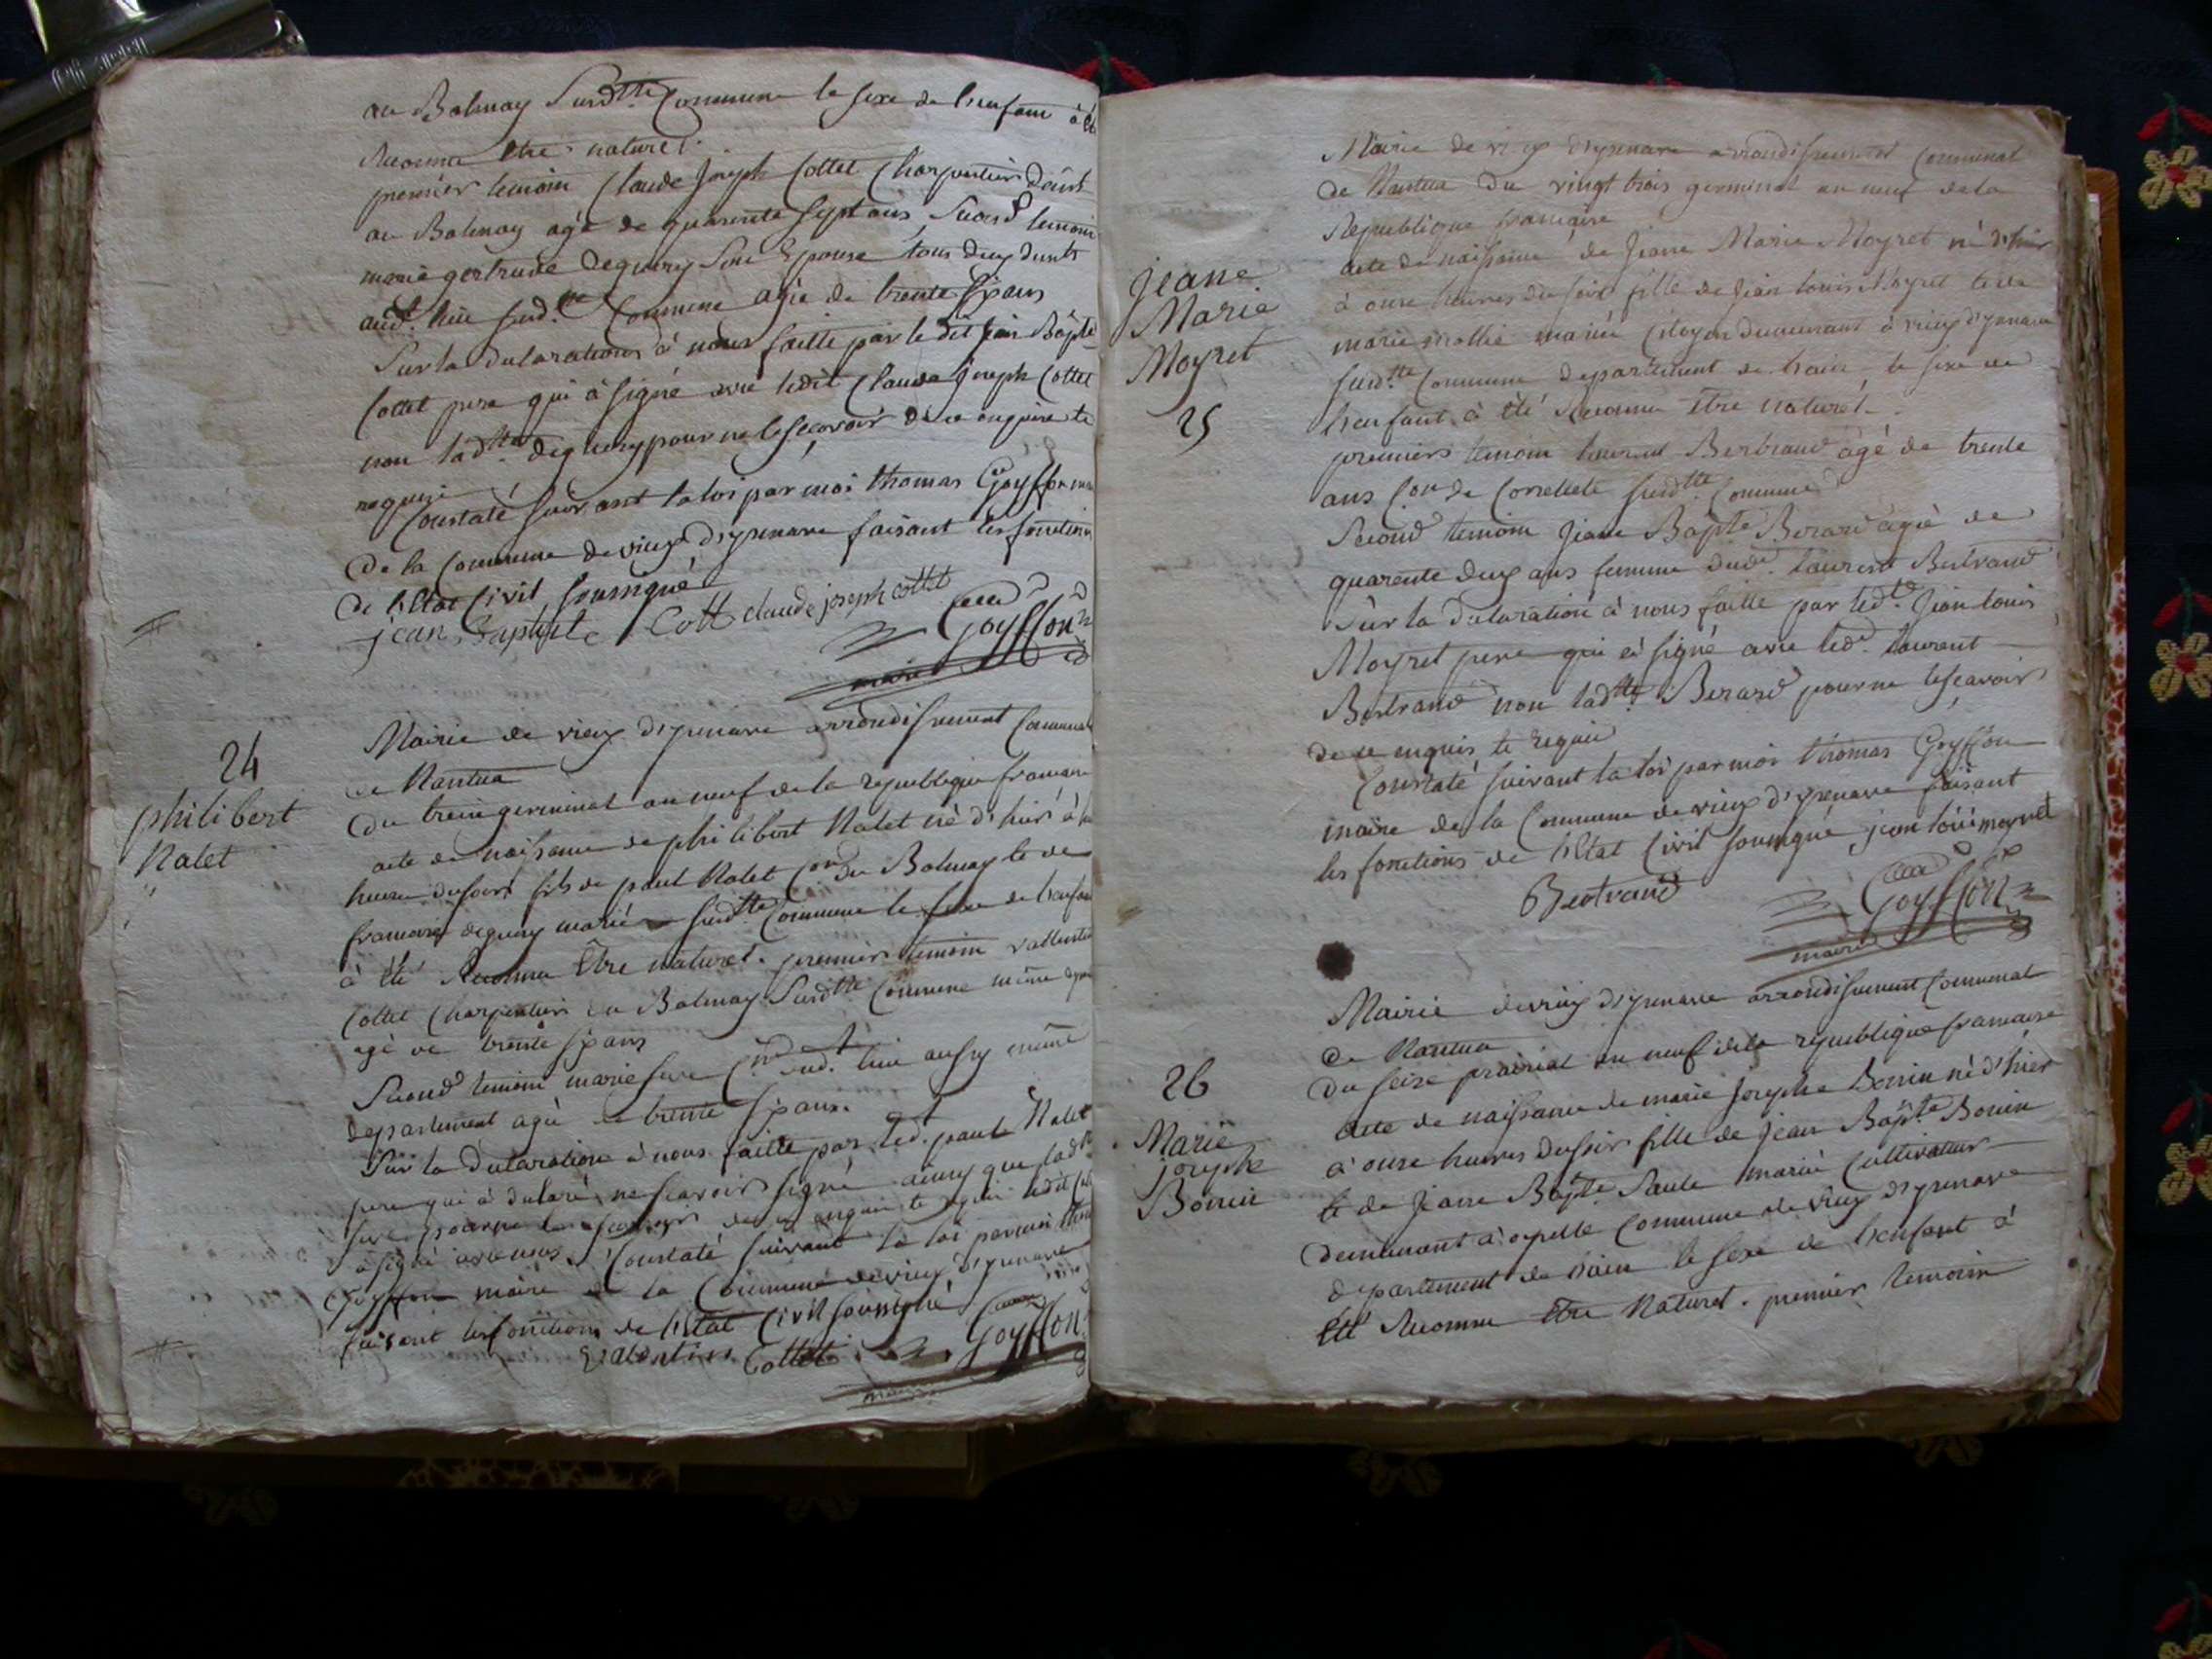 au Balmay Surdtte Commune le sexe de lenfant à été
Reconnu Etre naturel.
premier temoin Claude Joseph Cottet Charpentier deint
au Balmay agé de quarente sept ans, Second temoin
marie gertrude deguery Son Epouse tous deux
aud. lieu surd.tte Commune agée de trente six ans
Sur la declaration à nous faitte par le dit jean Bapte
Cottet pere qui à signé avec ledit Claude Joseph Cottet
non ladtte deguery pour ne le sçavoir de ce enquise et
requise
Constaté suivant la loi par moi thomas Goyffon maire
de la Commune de vieux d'yzenave faisant les fonctions
de l'Etat Civil soussigné
jean Baptiste Cott claude joseph cottet
Goyffon
maire
24
philibert
Nalet
Mairie de vieux d'yzenave arrondissement Communal
de Nantua
Du treize germinal an neuf de la republique francaise
acte de naissance de philibert Nalet né d'hier à
heures du soir fils de paul Nalet Con du Balmay et de
francoise deguery mariés surdtte Commune le sexe de lenfant
à été Reconnu Etre naturel. premier temoin vallentin
Cottet Charpentier au Balmay Surdtte Commune même
agé de trente six ans
Second temoin marie aud. lieu aussy même
departement agée de trente six ans.
Sur la declaration à nous faitte par led. paul Nalet
pere qui à declaré ne scavoir signé ainsy que ladtte
pour ne le scavoir de ce enquis et requis ledit
à signé avec nous. Constaté suivant la loi par moi thomas
Goyffon maire de la Commune de vieux d'yzenave
faisant les fonctions de l'Etat Civil soussigné
valentin Cottet Goyffon
maire
Mairie de vieux d'yzenave arrondissement Communal
de Nantua Du vingt trois germinal an neuf de la
Republique francaise
Jeane
Marie
Moyret
25
acte de naissance de Jeane Marie Moyret né d'hier
à onze heures du soir fille de Jean louis Moyret et de
marie mariés Citoyen demeurant à vieux d'yzenave
surd.tte Commune departement de lain le sexe de
lenfant à été Reconnu Etre naturel.
premiers temoin laurent Bertrand agé de trente
ans Con de surdtte Commune
Second temoin Jeane Bapte Berard agée de
quarente deux ans femme dud. laurent Bertrand
Sur la declaration à nous faitte par led. Jean louis
Moyret pere qui à signé avec led. laurent
Bertrand non ladtte Berard pour ne le scavoir
de ce enquis et requis
Constaté suivant la loi par moi thomas Goyffon
maire de la Commune de vieux d'yzenave faisant
les fonctions de l'Etat Civil soussigné jean loüi moyret
Bertrand Goyffon
maire
26
Marie
joseph
Bonin
Mairie de vieux d'yzenave arrondissement Communal
de Nantua
Du seize prairial an neuf de la republique francaise
acte de naissance de marie Josephe Bonin né d'hier
à onze heures du soir fille de Jean Bapte Bonin
et de Jeane Bapte mariés Cultivateur
demeurant à Commune de vieux d'yzenave
departement de lain le sexe de lenfant à
Eté Reconnu Etre Naturel. premier temoin